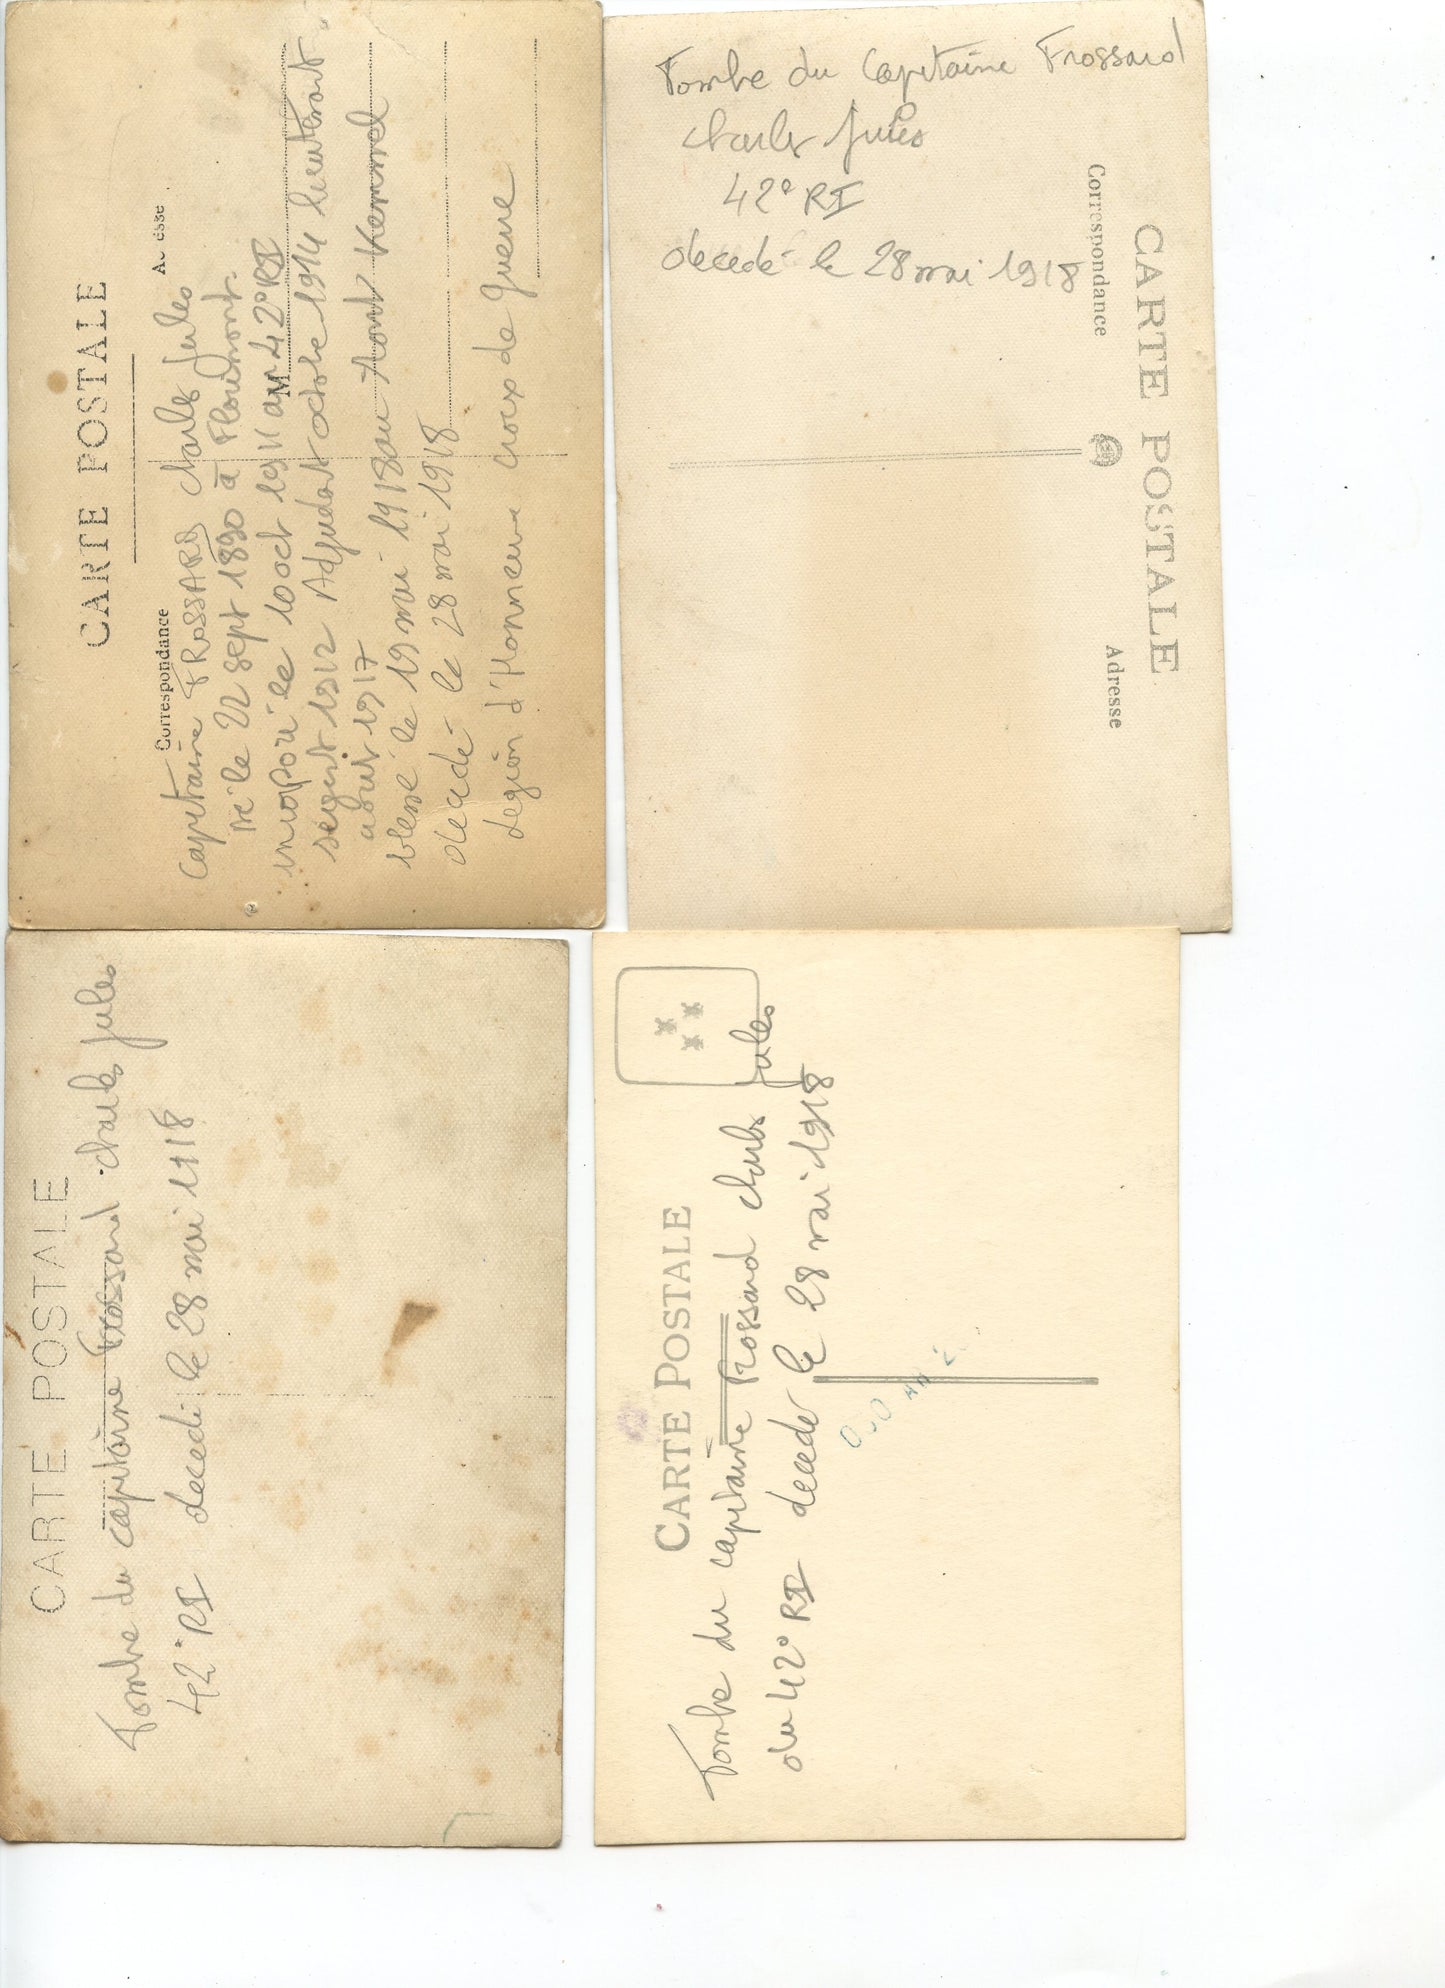 CARTE POSTALE
Correspondance
Capitaine FROSSARD Charles Jules
né le 22 sept 1890 à Florimont
incoporé le 10 oct 1911 au 42° RI
M
sergent 1912 Adjudant octobre 1914 lieutenant
aout 1917
blessé le 19 mai 1918 au Mont Kemmel
decedé le 28 mai 1918
Legion d'Honneur Croix de guerre
Tombe du Capitaine Frossard
Charles Jules
42° RI
decedé le 28 mai 1918
CARTE POSTALE
Correspondance
Adresse
CARTE POSTALE
Tombe du capitaine Frossard Charles Jules
42° RI decedé le 28 mai 1918
CARTE POSTALE
Tombe du capitaine Frossard Charles Jules
du 42° RI decedé le 28 mai 1918